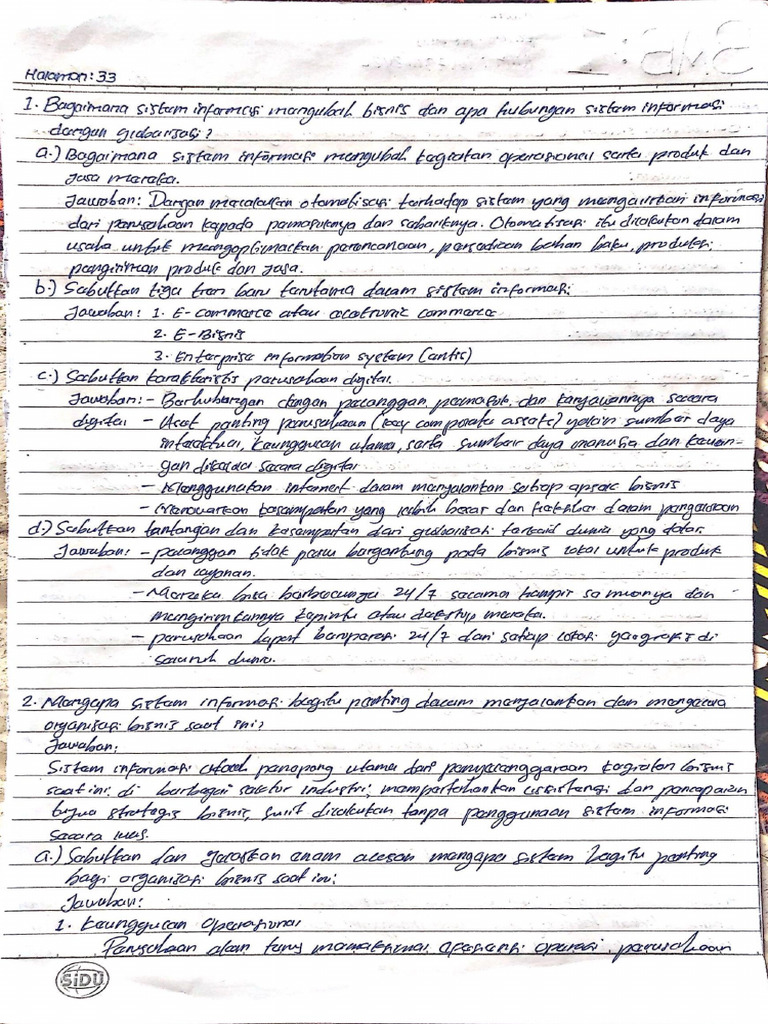 Halaman: 33
1. Bagaimana sistem informasi mengubah bisnis dan apa hubungan sistem informasi
dengan globalisasi?
a.) Bagaimana sistem informasi mengubah kegiatan operasional serta produk dan
jasa mereka.
Jawaban: Dengan melakukan otomatisasi terhadap sistem yang mengalirkan informasi
dari perusahaan kepada pemasoknya dan sebaliknya. Otomatisasi itu dilakukan dalam
usaha untuk mengoptimalkan perencanaan, persediaan bahan baku, produksi
pengiriman produk dan jasa.
b.) Sebutkan tiga tren baru terutama dalam sistem informasi
Jawaban: 1. E-commerce atau ecotronic commerce
2. E-Bisnis
3. Enterprise information system (antis)
c.) Sebutkan karakteristis perusahaan digital.
Jawaban: - Berhubungan dengan pelanggan, pemasok, dan karyawannya secara
digital - Aset penting perusahaan (key comporate assets) yakni sumber daya
intelektual, keunggulan utama, serta sumber daya manusia dan keuan-
gan dikelola secara digital
- Menggunakan internert dalam menjalankan setiap aspek bisnis
- Menawarkan kesempatan yang lebih besar dan fleksibel dalam pengelolaan
d.) Sebutkan tantangan dan kesempatan dari globalisasi terkait dunia yang datar
Jawaban: - pelanggan tidak perlu bergantung pada bisnis lokal untuk produk
dan layanan.
- Mereka bisa berbelanja 24/7 secara hampir semuanya dan
mengirimkannya kepintu atau dekstop mereka.
- perusahaan dapat beroperasi 24/7 dari setiap lokasi geografis di
seluruh dunia.
2. Mengapa sistem informasi begitu penting dalam menjalankan dan mengelola
organisasi bisnis saat ini?
Jawaban:
Sistem informasi adalah penopang utama dari penyelenggaraan kegiatan bisnis
saat ini. di berbagai sektor industri, mempertahankan eksistensi dan pencapaian
tujua strategis bisnis, sulit dilakukan tanpa penggunaan sistem informasi
secara luas.
a.) Sebutkan dan jelaskan enam alasan mengapa sistem begitu penting
bagi organisasi bisnis saat ini:
Jawaban:
1. Keunggulan Operasional
Perusahaan akan terus memaksimal efesiensi operasi perusahaan
SiDU